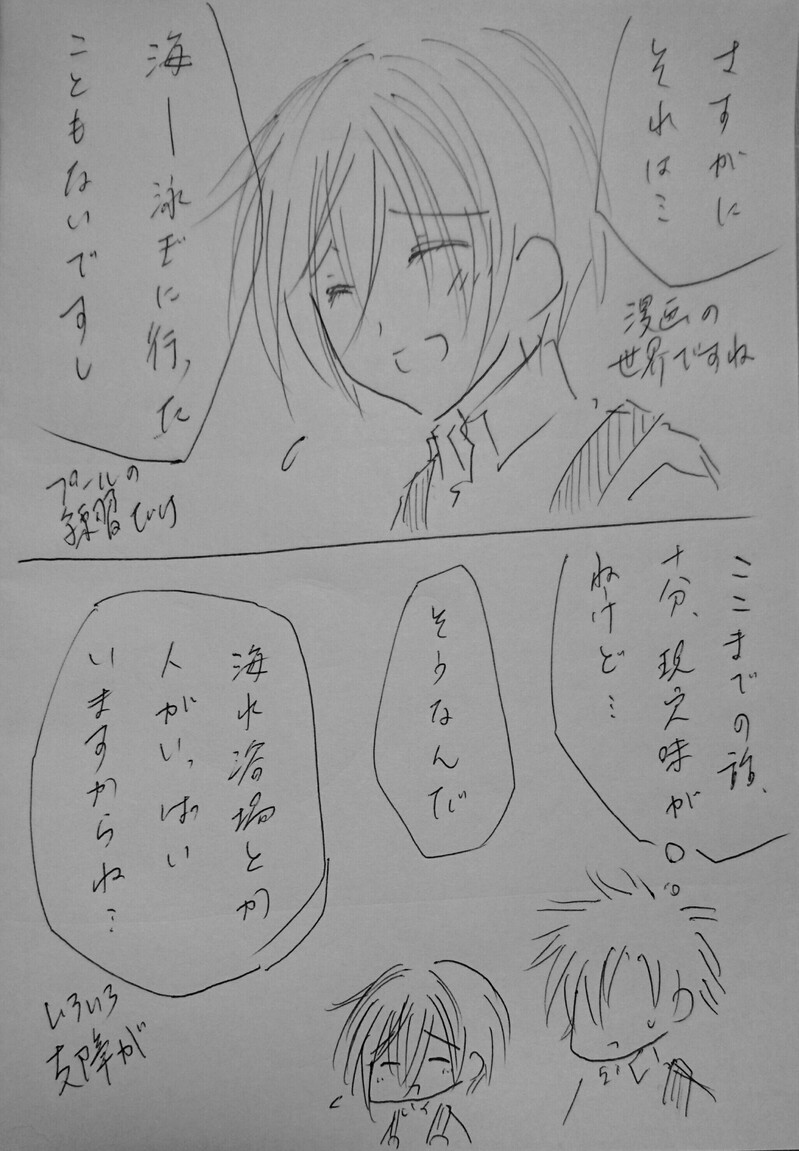 さすがに
それは…
漫画の
世界ですね
海ー泳ぎに行った
こともないですし
プールの
練習だけ
ここまでの話、
十分、現実味が
ねーけど…
そうなんだ
海水浴場とか
人がいっぱい
いますからね…
いろいろ
支障が